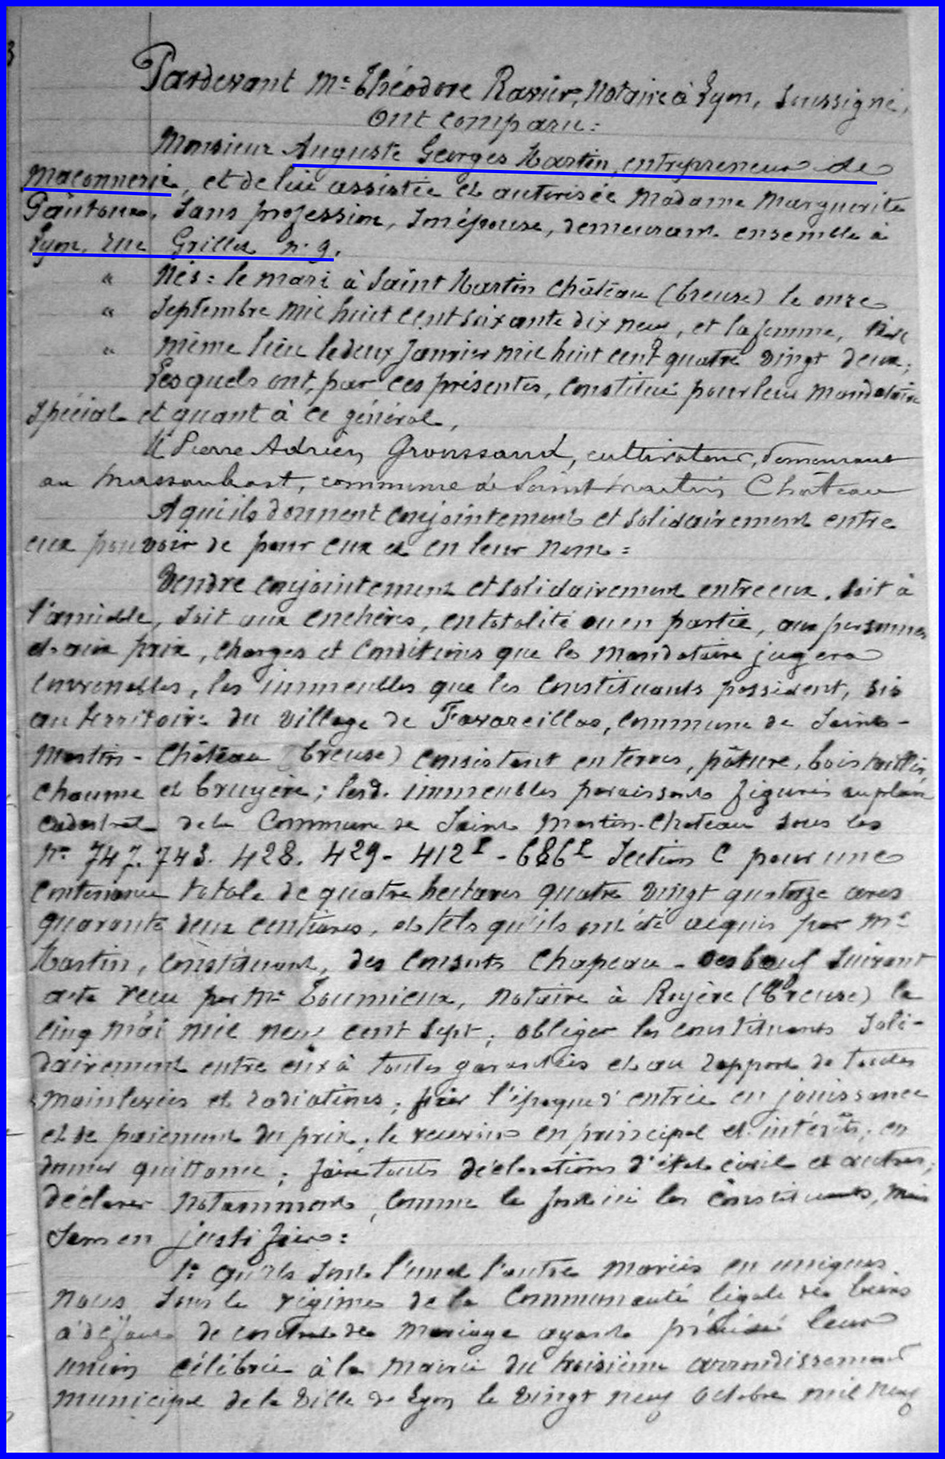 Pardevant Me Théodore Ravier, Notaire à Lyon, soussigné,
Ont comparu:
Monsieur Auguste Georges Martin, entrepreneur de
maçonnerie, et de lui assistée et autorisée Madame Marguerite
sans profession, son épouse, demeurant ensemble à
Lyon, rue Grillet n° 9.
" Nés: le mari à Saint Martin Château (Creuse) le onze
" Septembre mil huit cent soixante dix neuf, et la femme,
" même lieu le deux Janvier mil huit cent quatre vingt deux;
Lesquels ont, par ces présentes, constitué pour leur mandataire
spécial et quant à ce général,
M Pierre Adrien Groussaud, cultivateur, demeurant
au commune de Saint Martin Château
A qui ils donnent conjointement et solidairement entre
eux pouvoir de pour eux et en leur nom:
Vendre conjointement et solidairement entre eux, soit à
l'amiable, soit aux enchères, en totalité ou en partie, aux personnes
et aux prix, charges et conditions que le mandataire jugera
convenables, les immeubles que les constituants possèdent, sis
au territoire du village de Favareillas, commune de Saint-
Martin-Château (Creuse) consistant en terres, pâture, bois taillis,
chaume et bruyère; lesd. immeubles paraissant figurer au plan
cadastral de la Commune de Saint Martin-Château sous les
Nos 747. 743. 428. 429 - 412I - 686I Section C pour une
contenance totale de quatre hectares quatre vingt quatorze ares
quarante deux centiares, et tels qu'ils ont été acquis par Mr
Martin, constituant, des consorts Chapeau - Desbœuf suivant
acte reçu par Me Toumieux, notaire à Royère (Creuse) le
cinq mai mil neuf cent sept; obliger les constituants soli-
dairement entre eux à toutes garanties et au rapport de toutes
mainlevées et radiations; fixer l'époque d'entrée en jouissance
et de paiement du prix; le recevoir en principal et intérêts; en
donner quittance; faire toutes déclarations d'état civil et autres;
déclarer notamment, comme le font ici les constituants, mais
sans en justifier:
1° qu'ils sont l'un et l'autre mariés en uniques
noces sous le régime de la Communauté légale de biens
à défaut de contrat de mariage ayant précédé leur
union célébrée à la mairie du troisième arrondissement
municipal de la Ville de Lyon le vingt neuf Octobre mil neuf